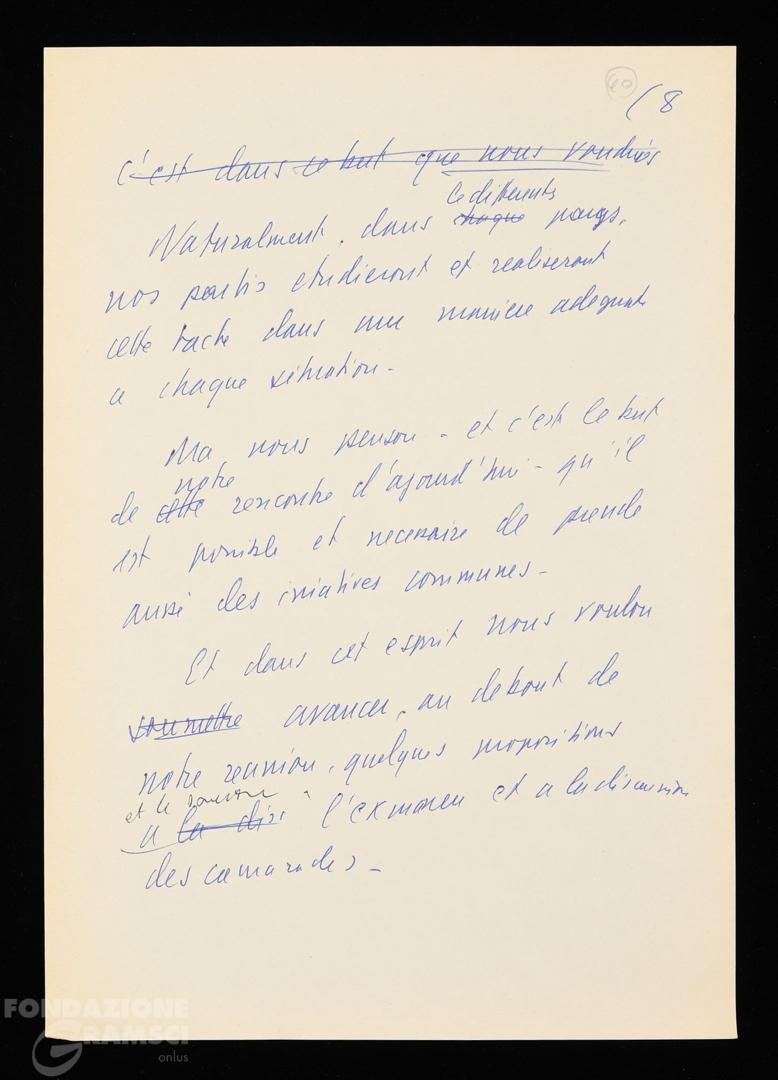 40
( 8
c'est dans ce but que nous voudries
Naturalment, dans chaque pays,
le differents
nos partis etudieront et realiseront
cette tache dans une maniere adequate
a chaque situation -
Ma nous penson - et c'est le but
de cette rencontre d'ajourd'hui - qu'il
notre
est possible et necessaire de prende
aussi des iniatives communes -
Et dans cet esprit nous voulon
soumettre avancer, au debout de
notre reunion, quelques propositions
et le
a la dis. l'examen et a la discussion
des camarades -
FONDAZIONE
GRAMSCI
onlus